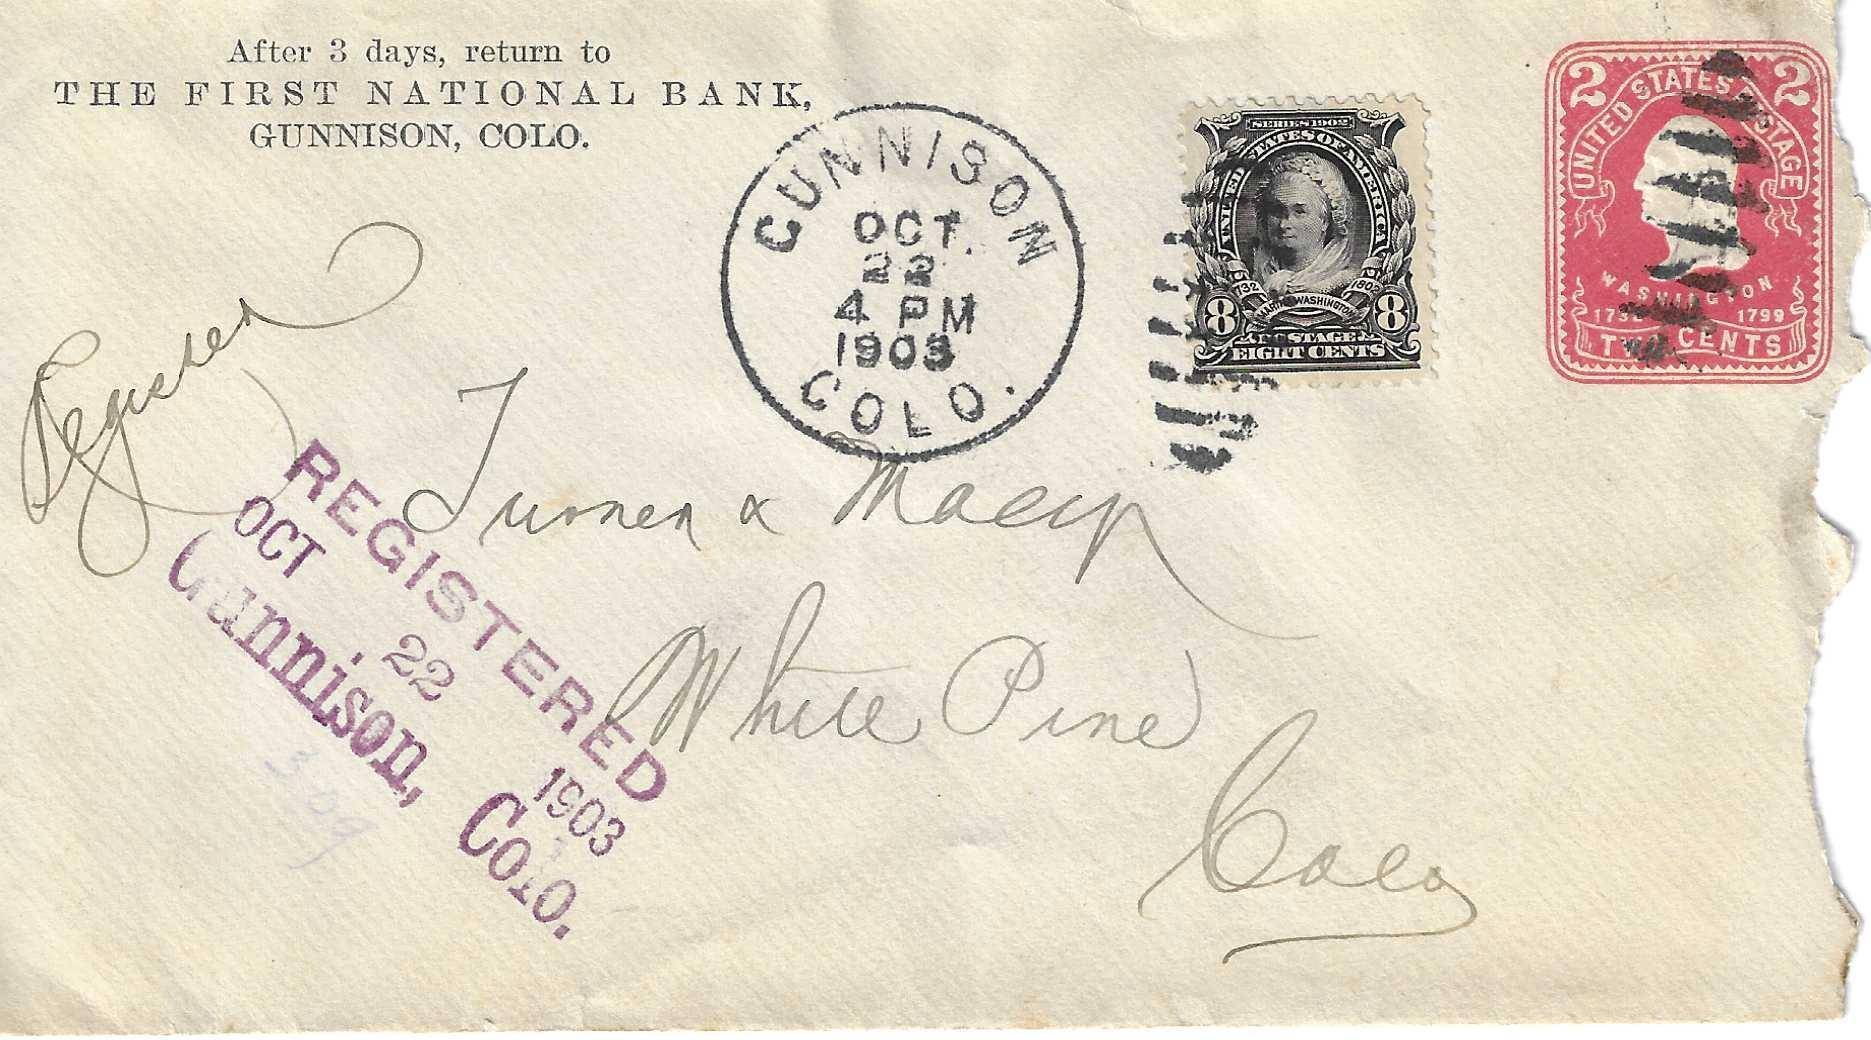 After 3 days, return to
THE FIRST NATIONAL BANK,
GUNNISON, COLO.
GUNNISON
OCT.
22
4 PM
1903
COLO.
SERIES 1902
UNITED STATES OF AMERICA
1732 1802
MARTHA WASHINGTON
8 8
POSTAGE
EIGHT CENTS
2 2
UNITED STATES POSTAGE
WASHINGTON
1732 1799
TWO CENTS
Register
REGISTERED
OCT 22 1903
Gunnison, Colo.
Turner & Macy
White Pine
Colo